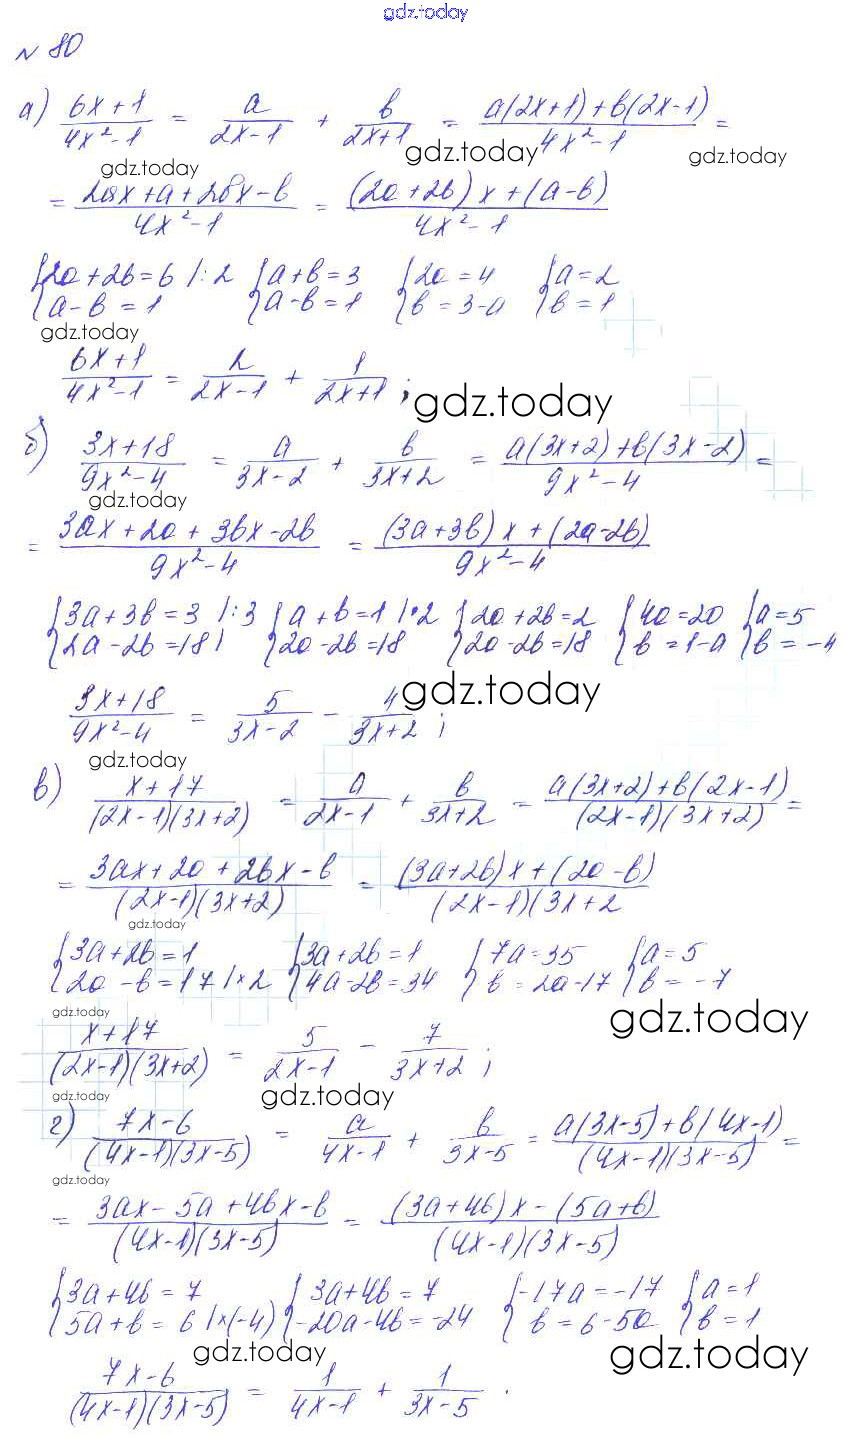 gdz.today
№ 80
а) (6x+1)/(4x²-1) = a/(2x-1) + b/(2x+1) = (a(2x+1)+b(2x-1))/(4x²-1) =
gdz.today gdz.today gdz.today
= (2ax+a+2bx-b)/(4x²-1) = ((2a+2b)x+(a-b))/(4x²-1)
{2a+2b=6 |:2 {a+b=3 {2a=4 {a=2
{a-b=1 {a-b=1 {b=3-a {b=1
gdz.today
(6x+1)/(4x²-1) = 2/(2x-1) + 1/(2x+1);
gdz.today
б) (3x+18)/(9x²-4) = a/(3x-2) + b/(3x+2) = (a(3x+2)+b(3x-2))/(9x²-4) =
gdz.today
= (3ax+2a+3bx-2b)/(9x²-4) = ((3a+3b)x+(2a-2b))/(9x²-4)
{3a+3b=3 |:3 {a+b=1 |·2 {2a+2b=2 {4a=20 {a=5
{2a-2b=18 | {2a-2b=18 {2a-2b=18 {b=1-a {b=-4
(3x+18)/(9x²-4) = 5/(3x-2) - 4/(3x+2);
gdz.today
gdz.today
в) (x+17)/((2x-1)(3x+2)) = a/(2x-1) + b/(3x+2) = (a(3x+2)+b(2x-1))/((2x-1)(3x+2)) =
= (3ax+2a+2bx-b)/((2x-1)(3x+2)) = ((3a+2b)x+(2a-b))/((2x-1)(3x+2
gdz.today
{3a+2b=1 {3a+2b=1 {7a=35 {a=5
{2a-b=17 |×2 {4a-2b=34 {b=2a-17 {b=-7
gdz.today gdz.today
(x+17)/((2x-1)(3x+2)) = 5/(2x-1) - 7/(3x+2);
gdz.today gdz.today
г) (7x-6)/((4x-1)(3x-5)) = a/(4x-1) + b/(3x-5) = (a(3x-5)+b(4x-1))/((4x-1)(3x-5)) =
gdz.today
= (3ax-5a+4bx-b)/((4x-1)(3x-5)) = ((3a+4b)x-(5a+b))/((4x-1)(3x-5))
{3a+4b=7 {3a+4b=7 {-17a=-17 {a=1
{5a+b=6 |×(-4) {-20a-4b=-24 {b=6-5a {b=1
gdz.today gdz.today
(7x-6)/((4x-1)(3x-5)) = 1/(4x-1) + 1/(3x-5).